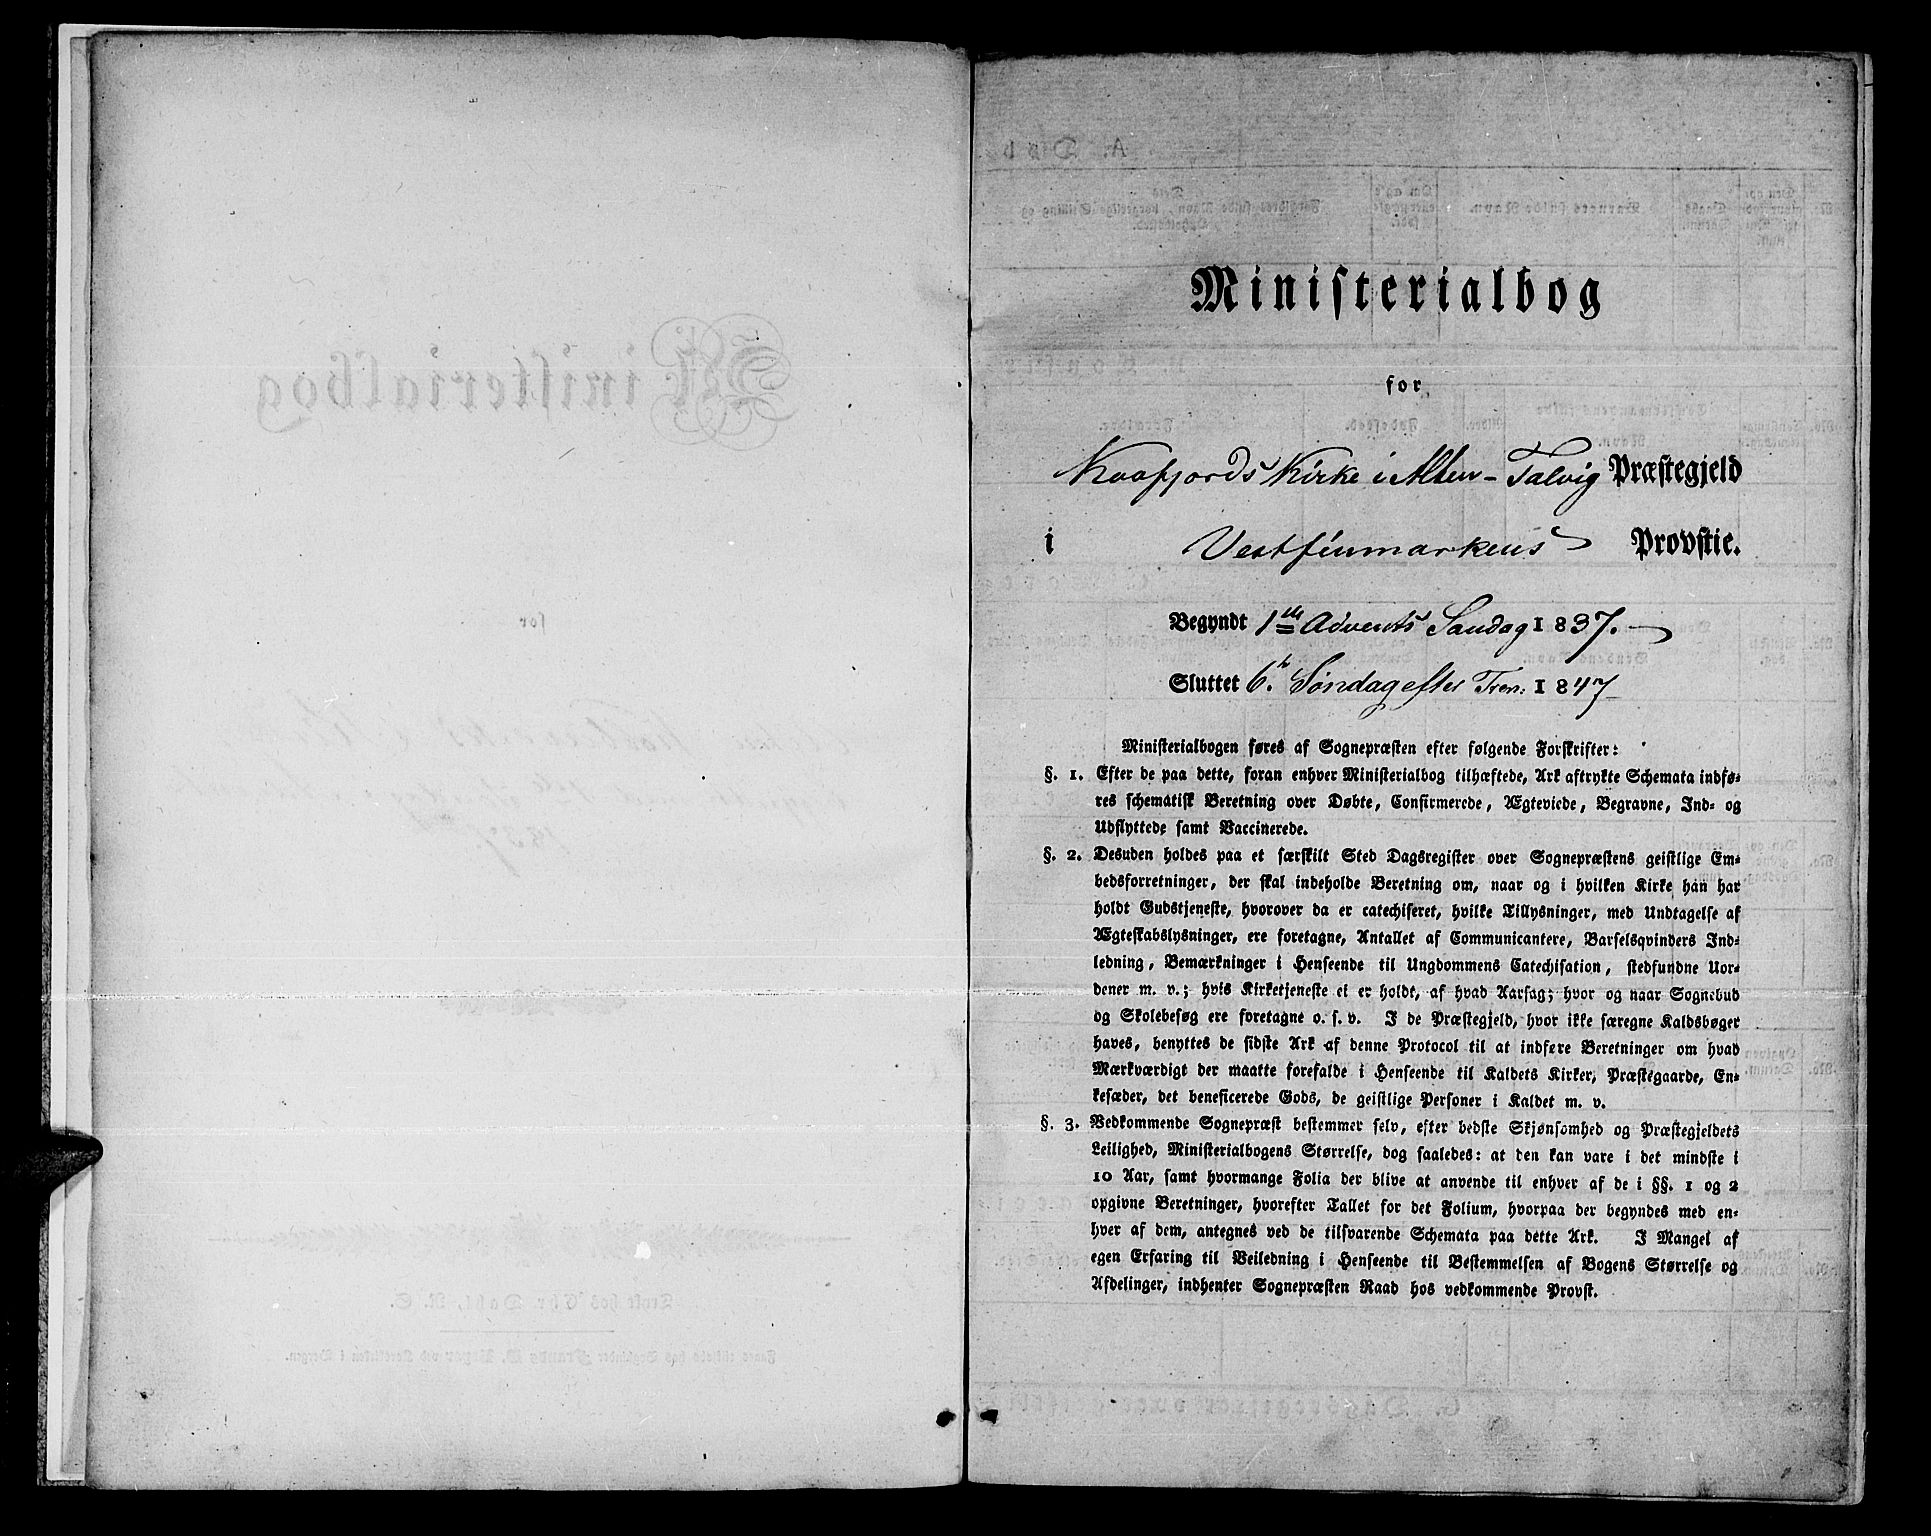 Ministerialbog
for
Kaafjords Kirke i Alten-Talvig Præstegjeld
i Vestfinmarkens Provstie.
Begyndt 1ste Advents Søndag 1837.
Sluttet 6te Søndag efter Tren: 1847
Ministerialbogen føres af Sognepræsten efter følgende Forskrifter:
§. 1. Efter de paa dette, foran enhver Ministerialbog tilhæftede, Ark aftrykte Schemata indfø-
res schematisk Beretning over Døbte, Confirmerede, Ægteviede, Begravne, Ind- og
Udflyttede samt Vaccinerede.
§. 2. Desuden holdes paa et særskilt Sted Dagsregister over Sognepræstens geistlige Em-
bedsforretninger, der skal indeholde Beretning om, naar og i hvilken Kirke han har
holdt Gudstjeneste, hvorover da er catechiseret, hvilke Tillysninger, med Undtagelse af
Ægteskabslysninger, ere foretagne, Antallet af Communicantere, Barselsqvinders Ind-
ledning, Bemærkninger i Henseende til Ungdommens Catechisation, stedfundne Uor-
dener m. v.; hvis Kirketjeneste ei er holdt, af hvad Aarsag; hvor og naar Sognebud
og Skolebesøg ere foretagne o. s. v. I de Præstegjeld, hvor ikke særegne Kaldsbøger
haves, benyttes de sidste Ark af denne Protocol til at indføre Beretninger om hvad
Mærkværdigt der maatte forefalde i Henseende til Kaldets Kirker, Præstegaarde, En-
kesæder, det beneficerede Gods, de geistlige Personer i Kaldet m. v.
§. 3. Vedkommende Sognepræst bestemmer selv, efter bedste Skjønsomhed og Præstegjeldets
Leilighed, Ministerialbogens Størrelse, dog saaledes: at den kan vare i det mindste i
10 Aar, samt hvormange Folia der blive at anvende til enhver af de i §§. 1 og 2
opgivne Beretninger, hvorefter Tallet for det Folium, hvorpaa der begyndes med en-
hver af dem, antegnes ved de tilsvarende Schemata paa dette Ark. I Mangel af
egen Erfaring til Veiledning i Henseende til Bestemmelsen af Bogens Størrelse og
Afdelinger, indhenter Sognepræsten Raad hos vedkommende Provst.